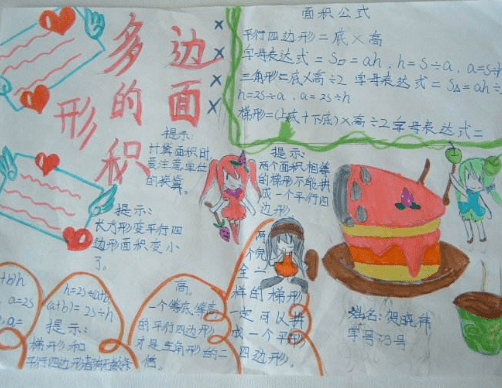 多边形的面积
面积公式
平行四边形=底×高
字母表达式=S▱=ah，h=S÷a，a=S÷h
三角形=底×高÷2 字母表达式=S△=ah÷
h=2S÷a，a=2S÷h
梯形=(上底+下底)×高÷2 字母表达式=
提示:
计算面积时
要注意单位
的换算。
提示:
两个面积相等
的梯形不能拼
成一个平行四
边形。
提示:
长方形变平行四
边形面积变小
了。
两个完全一样的梯形
一定可以拼
成一个平行
四边形。
h=2S÷(a+b)
(a+b)=2S÷h
提示:
梯形和
平行四边形
高。
一个等底等高
的平行四边形
才是三角形的二
倍。
姓名:
学号:39号